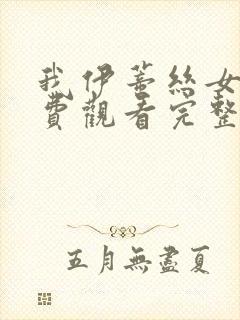 我伊蒂丝女
費觀看完整
五月無盡夏